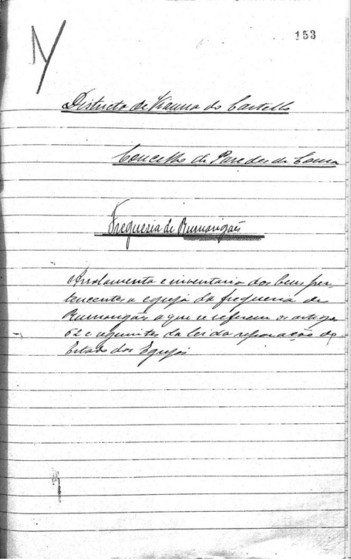 153
Districto de Vianna do Castello
Concelho de Paredes de Coura
Freguesia de Rumarigães
Arrolamento e inventario dos bens per-
tencentes a egreja da freguesia de
Rumarigães a que se referem os artigos
62 e seguintes da lei da separação do
Estado das Egrejas